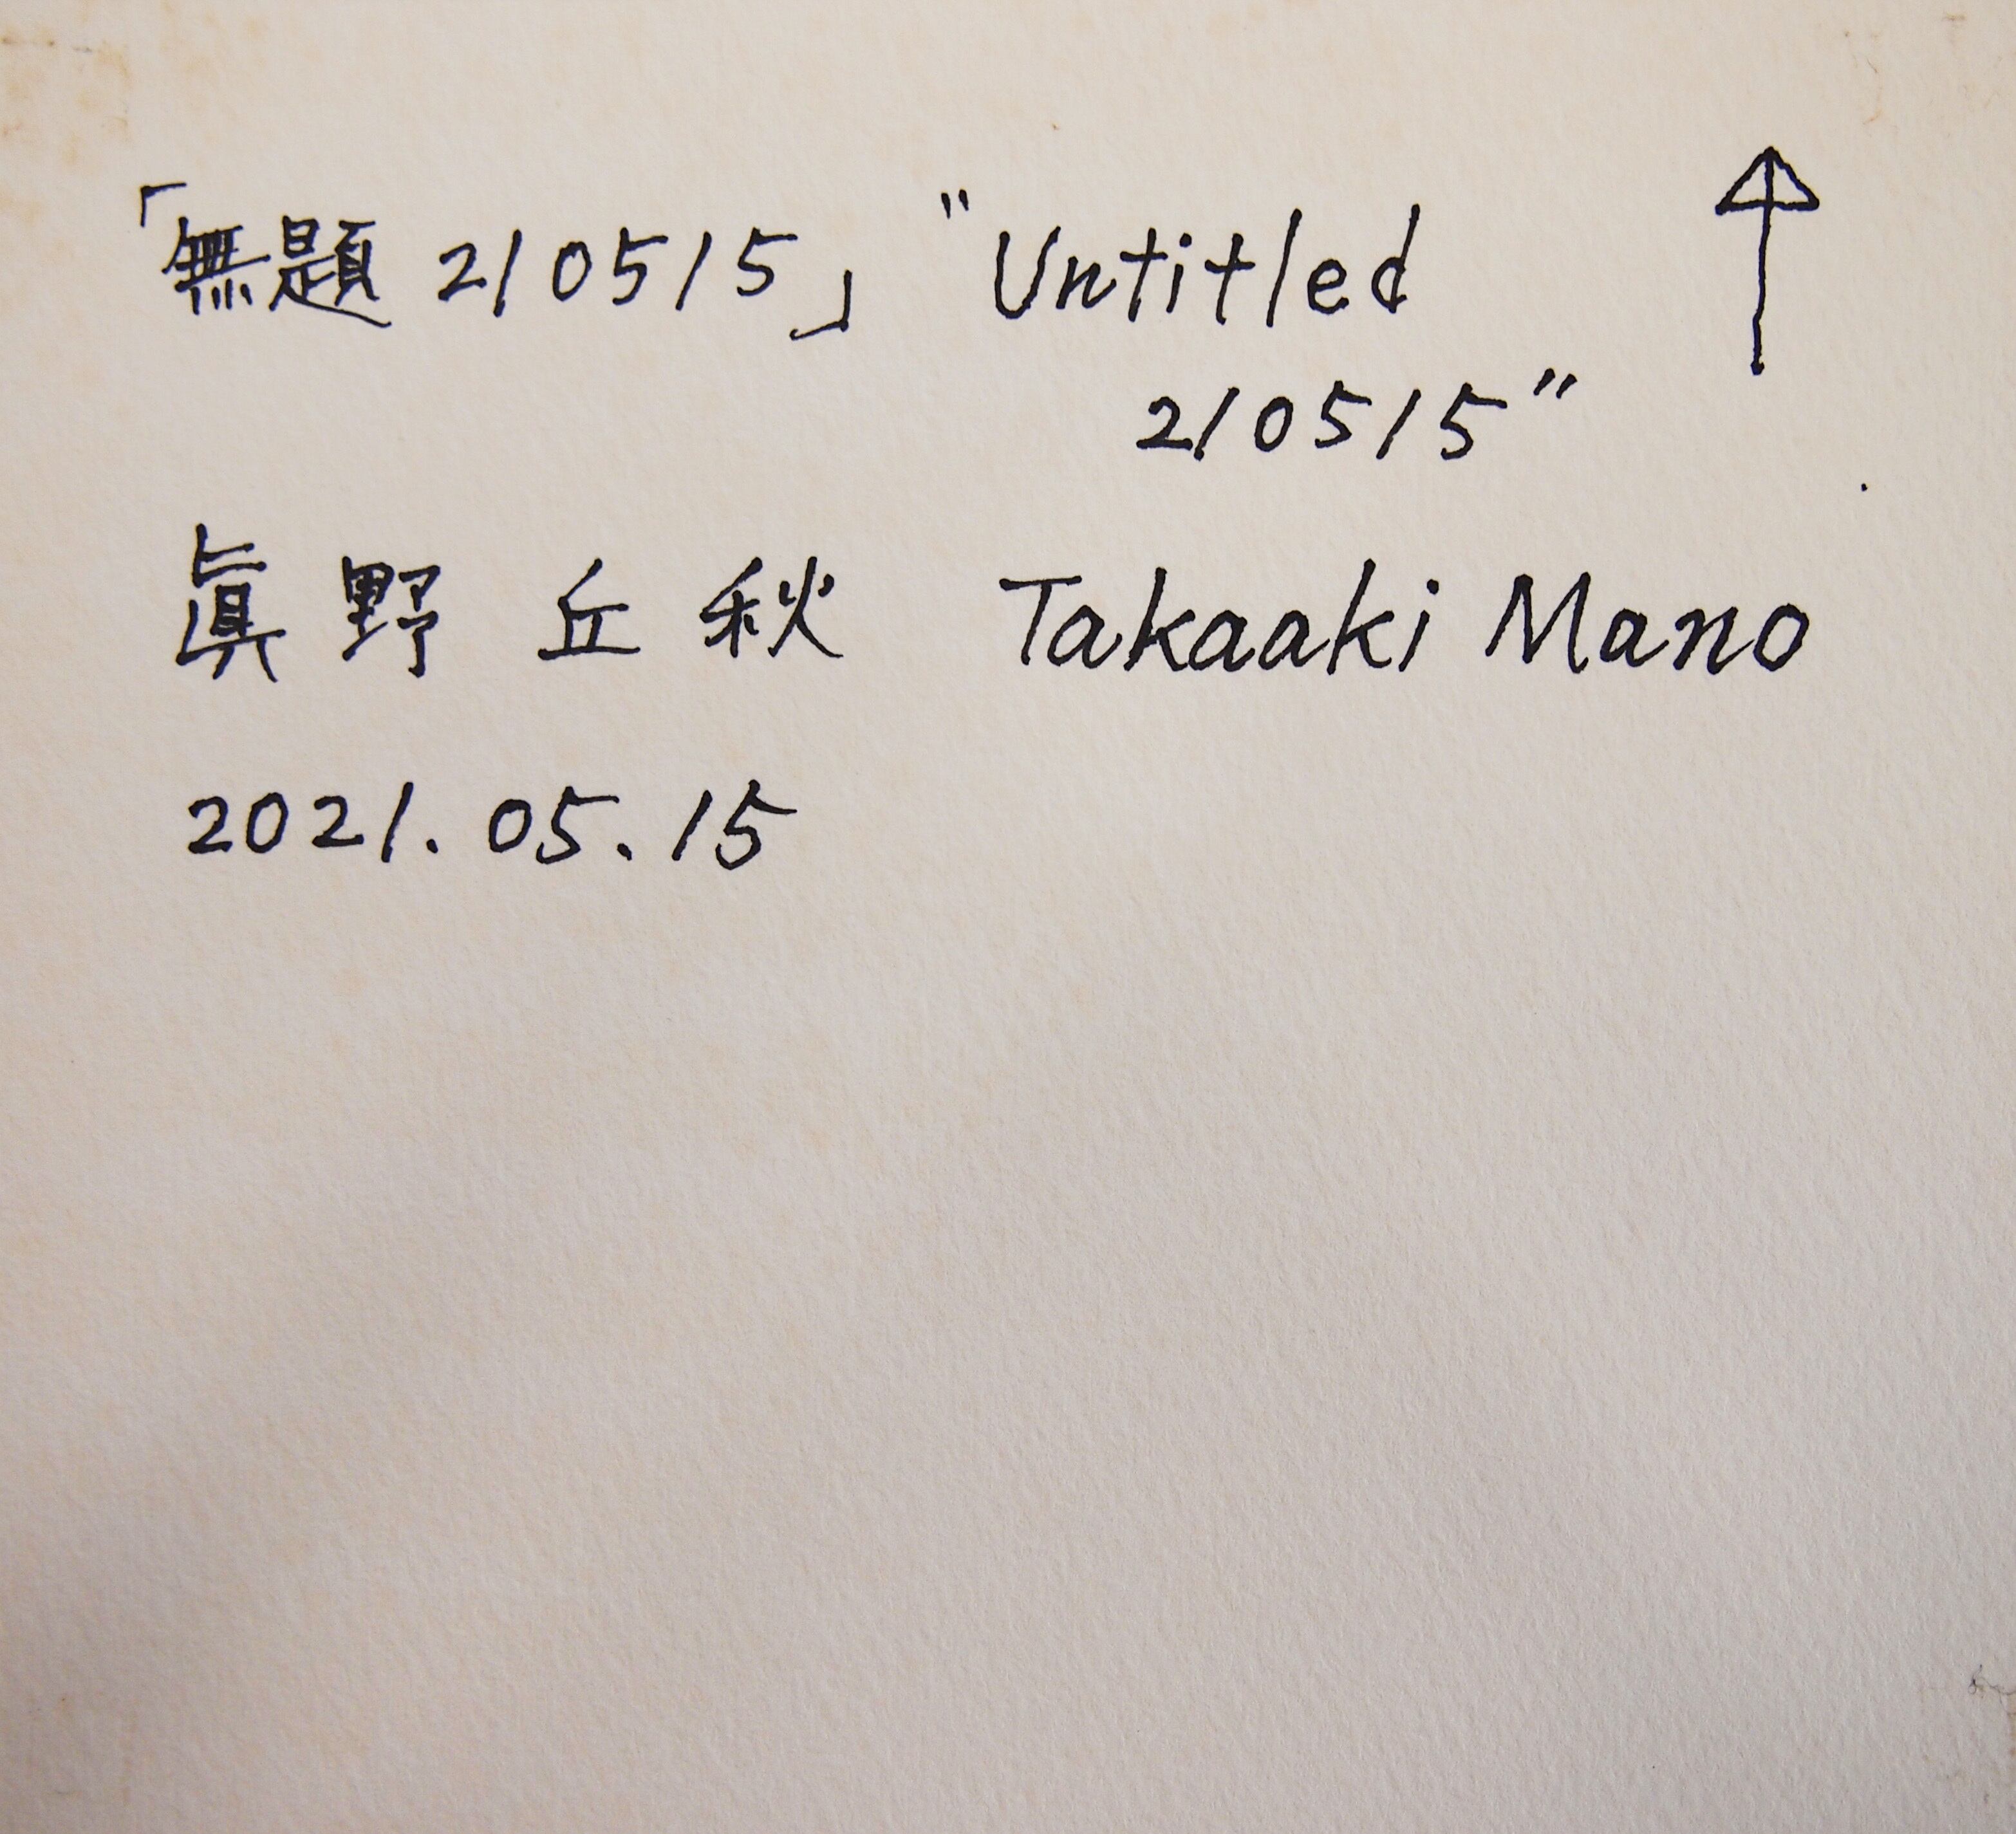 「無題 210515」 "Untitled
210515"
眞野 丘秋 Takaaki Mano
2021.05.15